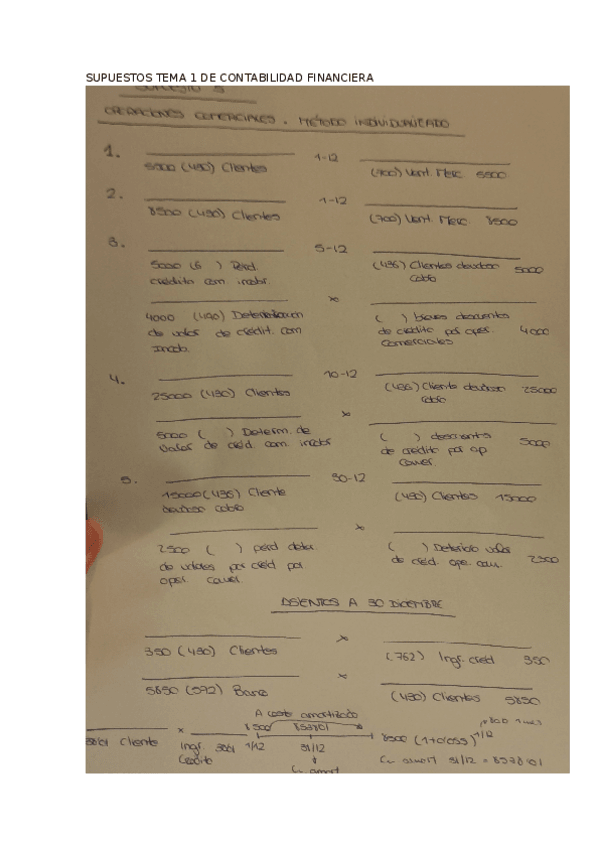 SUPUESTOS TEMA 1 DE CONTABILIDAD FINANCIERA
SUPUESTO 5
OPERACIONES COMERCIALES. MÉTODO INDIVIDUALIZADO
1. 1-12
5500 (430) Clientes (700) Vent. Merc. 5500
2. 1-12
8500 (430) Clientes (700) Vent. Merc. 8500
3. 5-12
5000 (6 ) Perd. (436) Clientes dudoso 5000
crédito com. incobr. cobro
x
4000 (490) Deterioro de ( ) 4000
de valor de crédit. com de crédito por oper.
incob. comerciales
4. 10-12
25000 (430) Clientes (436) Cliente dudoso 25000
cobro
x
5000 ( ) Determ. de ( ) 5000
valor de créd. com. incobr de crédito por op
comer.
5. 30-12
15000 (436) Cliente (430) Clientes 15000
dudoso cobro
x
2500 ( ) perd deter. ( ) Deterioro valor 2500
de valores por créd por de créd. ope. com.
oper. comer.
ASIENTOS A 30 DICIEMBRE
x
350 (430) Clientes (762) Ingr. créd 350
x
5850 (572) Banco (430) Clientes 5850
A coste amortizado
8500 8538'01
x
3801 Cliente Ingr. 3801 1/12 31/12 8500 (1+0'055)^1/12
Crédito
C. amort C. amort 31/12 = 8538'01